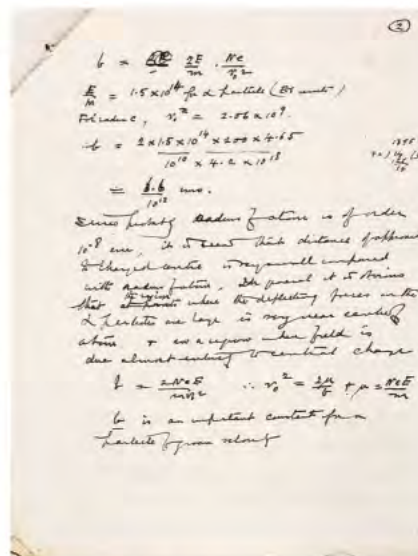 2
b = 2E/m . Ne/v₀²
E/M = 1.5 × 10¹⁴ for α particle (ES units)
For radium C, v₀ = 2.06 × 10⁹.
∴ b = 2 × 1.5 × 10¹⁴ × 200 × 4.65 / 10¹⁰ × 4.2 × 10¹⁸
= 6.6 / 10¹² cms.
Since probably radius of atom is of order
10⁻⁸ cms, it is seen that distance of approach
to charged centre is very small compared
with radius of atom. In general it is obvious
that the region where the deflecting forces on the
α particles are large is very near centre of
atom & in a region where field is
due almost entirely to central charge
b = 2NeE/mv₀² ∴ v₀² = 2μ/b & μ = NeE/m
b is an important constant for a
particle of given velocity